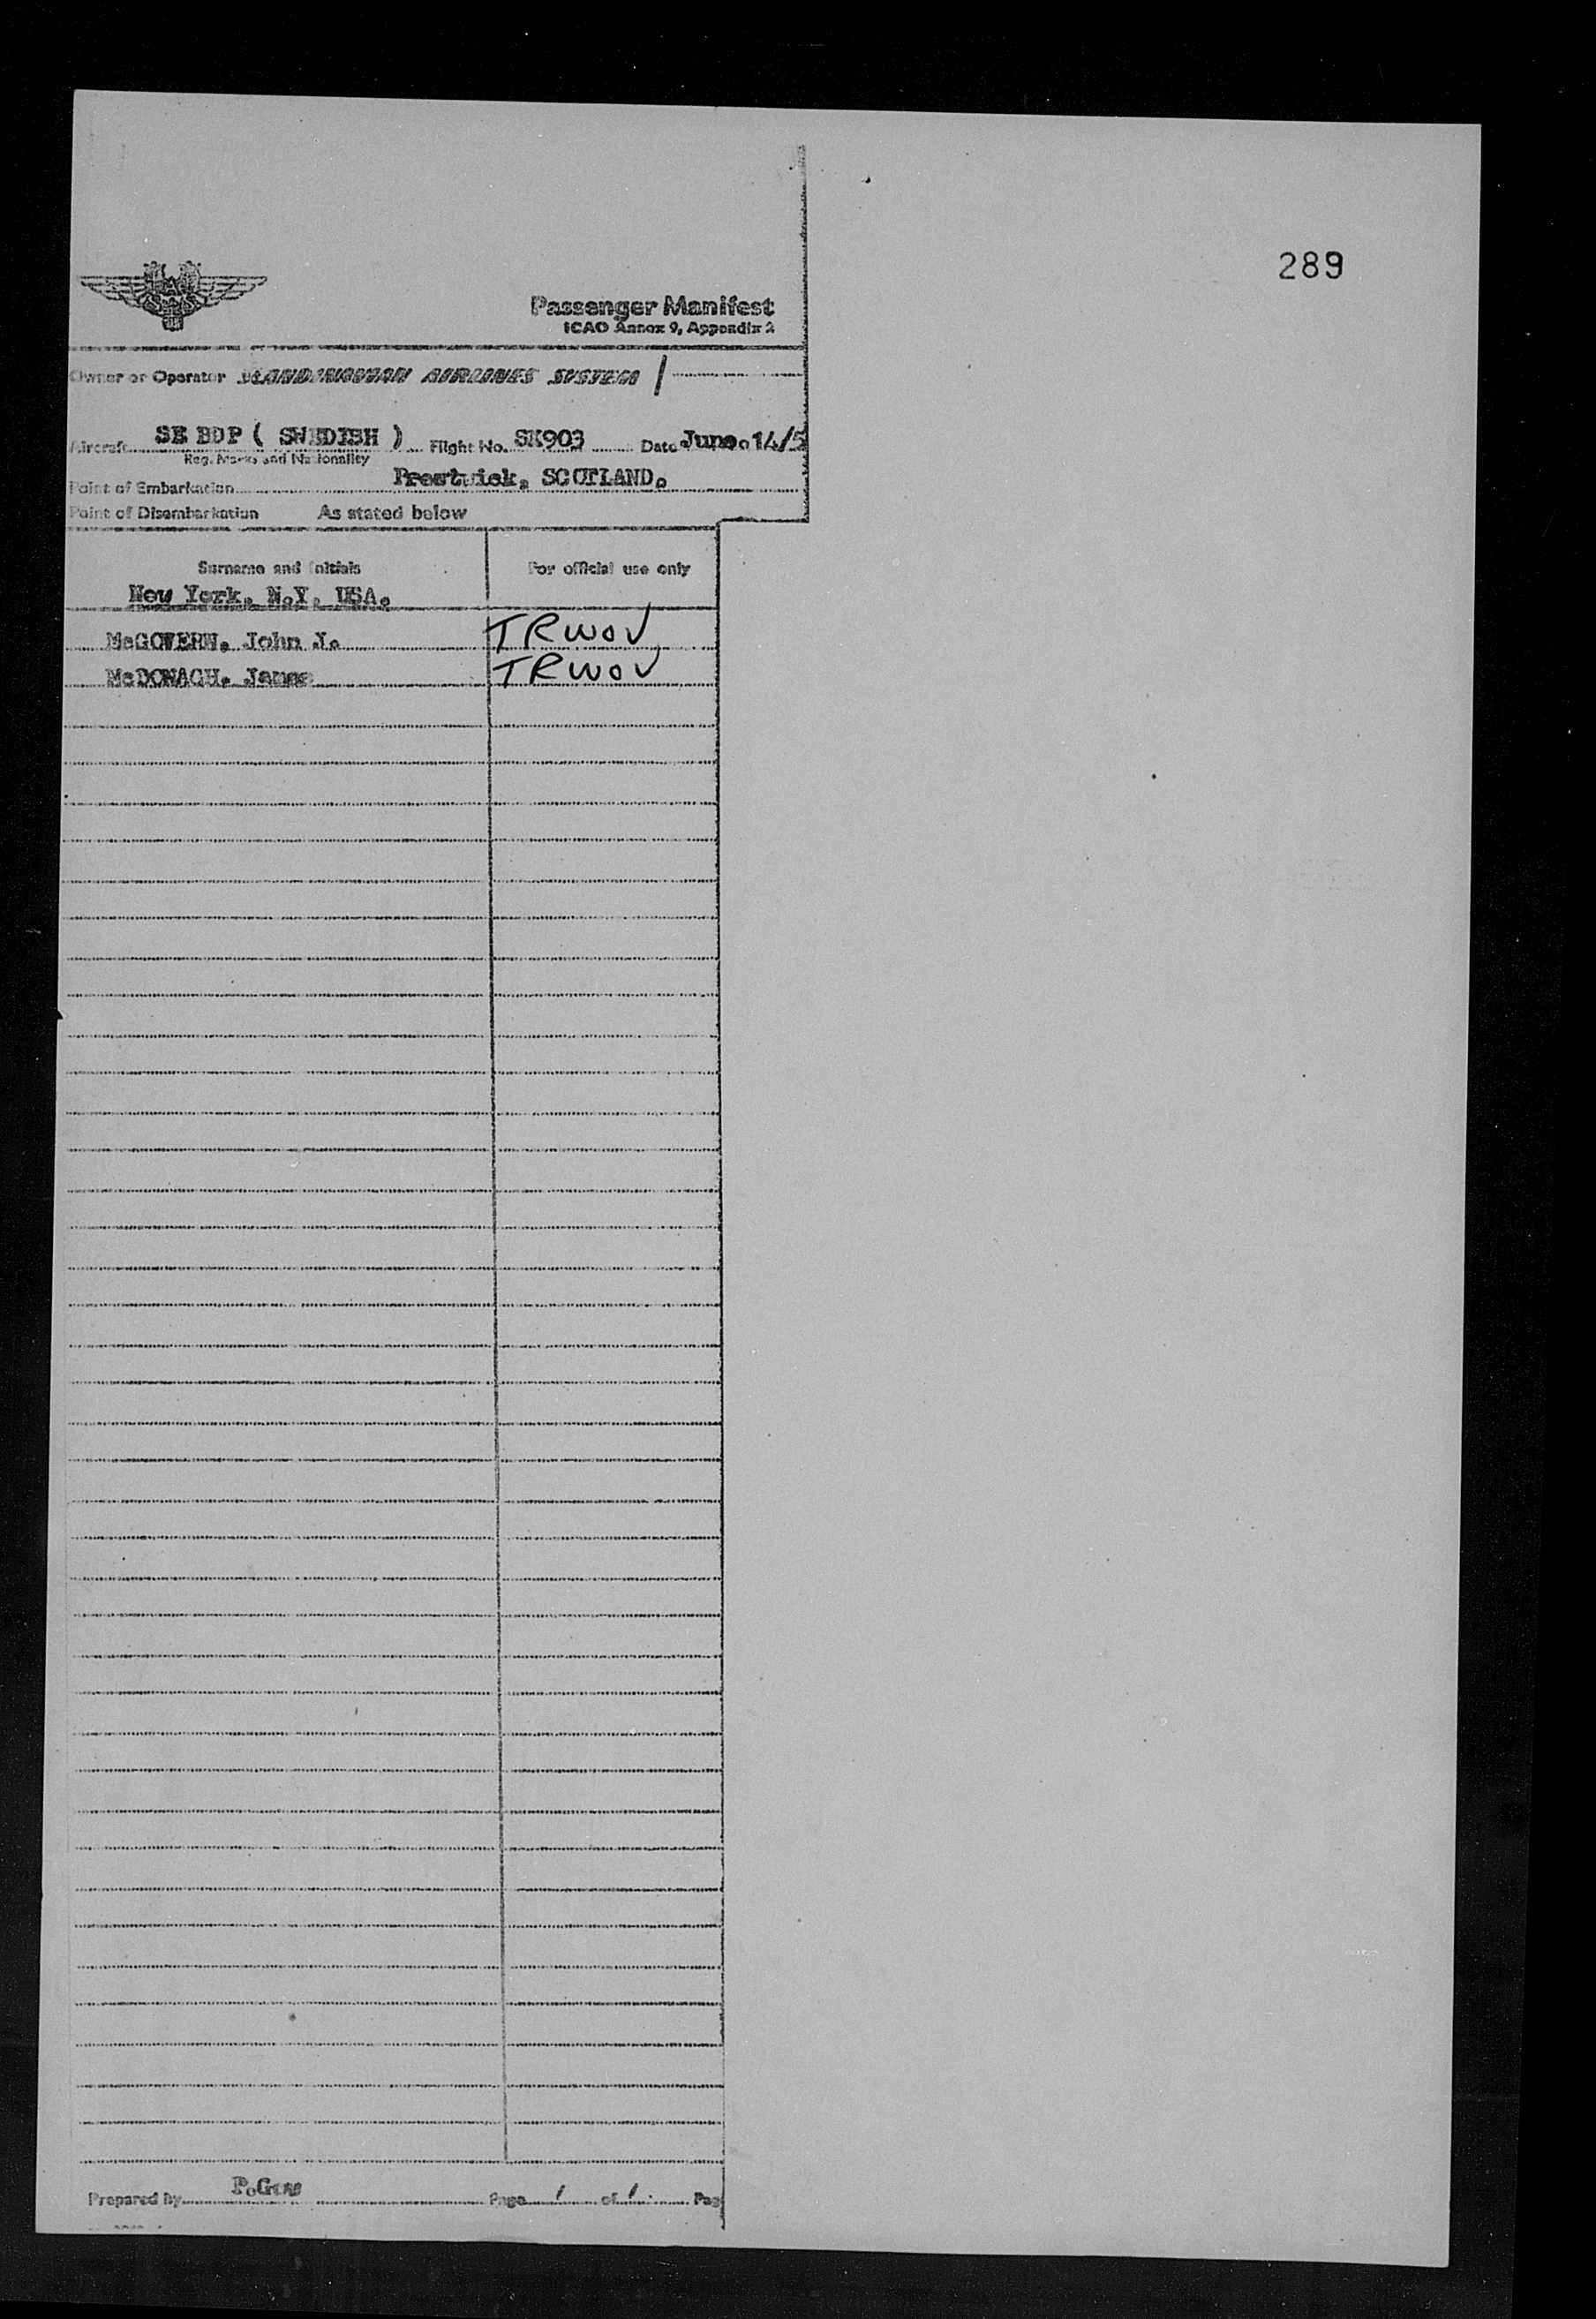 289
Passenger Manifest
ICAO Annex 9, Appendix 2
Owner or Operator SCANDINAVIAN AIRLINES SYSTEM /
Aircraft SE BDP ( SWEDISH ) Flight No. SK903 Date June 14/5
Reg. Marks and Nationality
Point of Embarkation Prestwick, SCOTLAND.
Point of Disembarkation As stated below
Surname and Initials For official use only
New York, N.Y. USA.
McGOVERN. John J. TRWOV
McDONAGH. James TRWOV
Prepared by Page 1 of 1. Pag